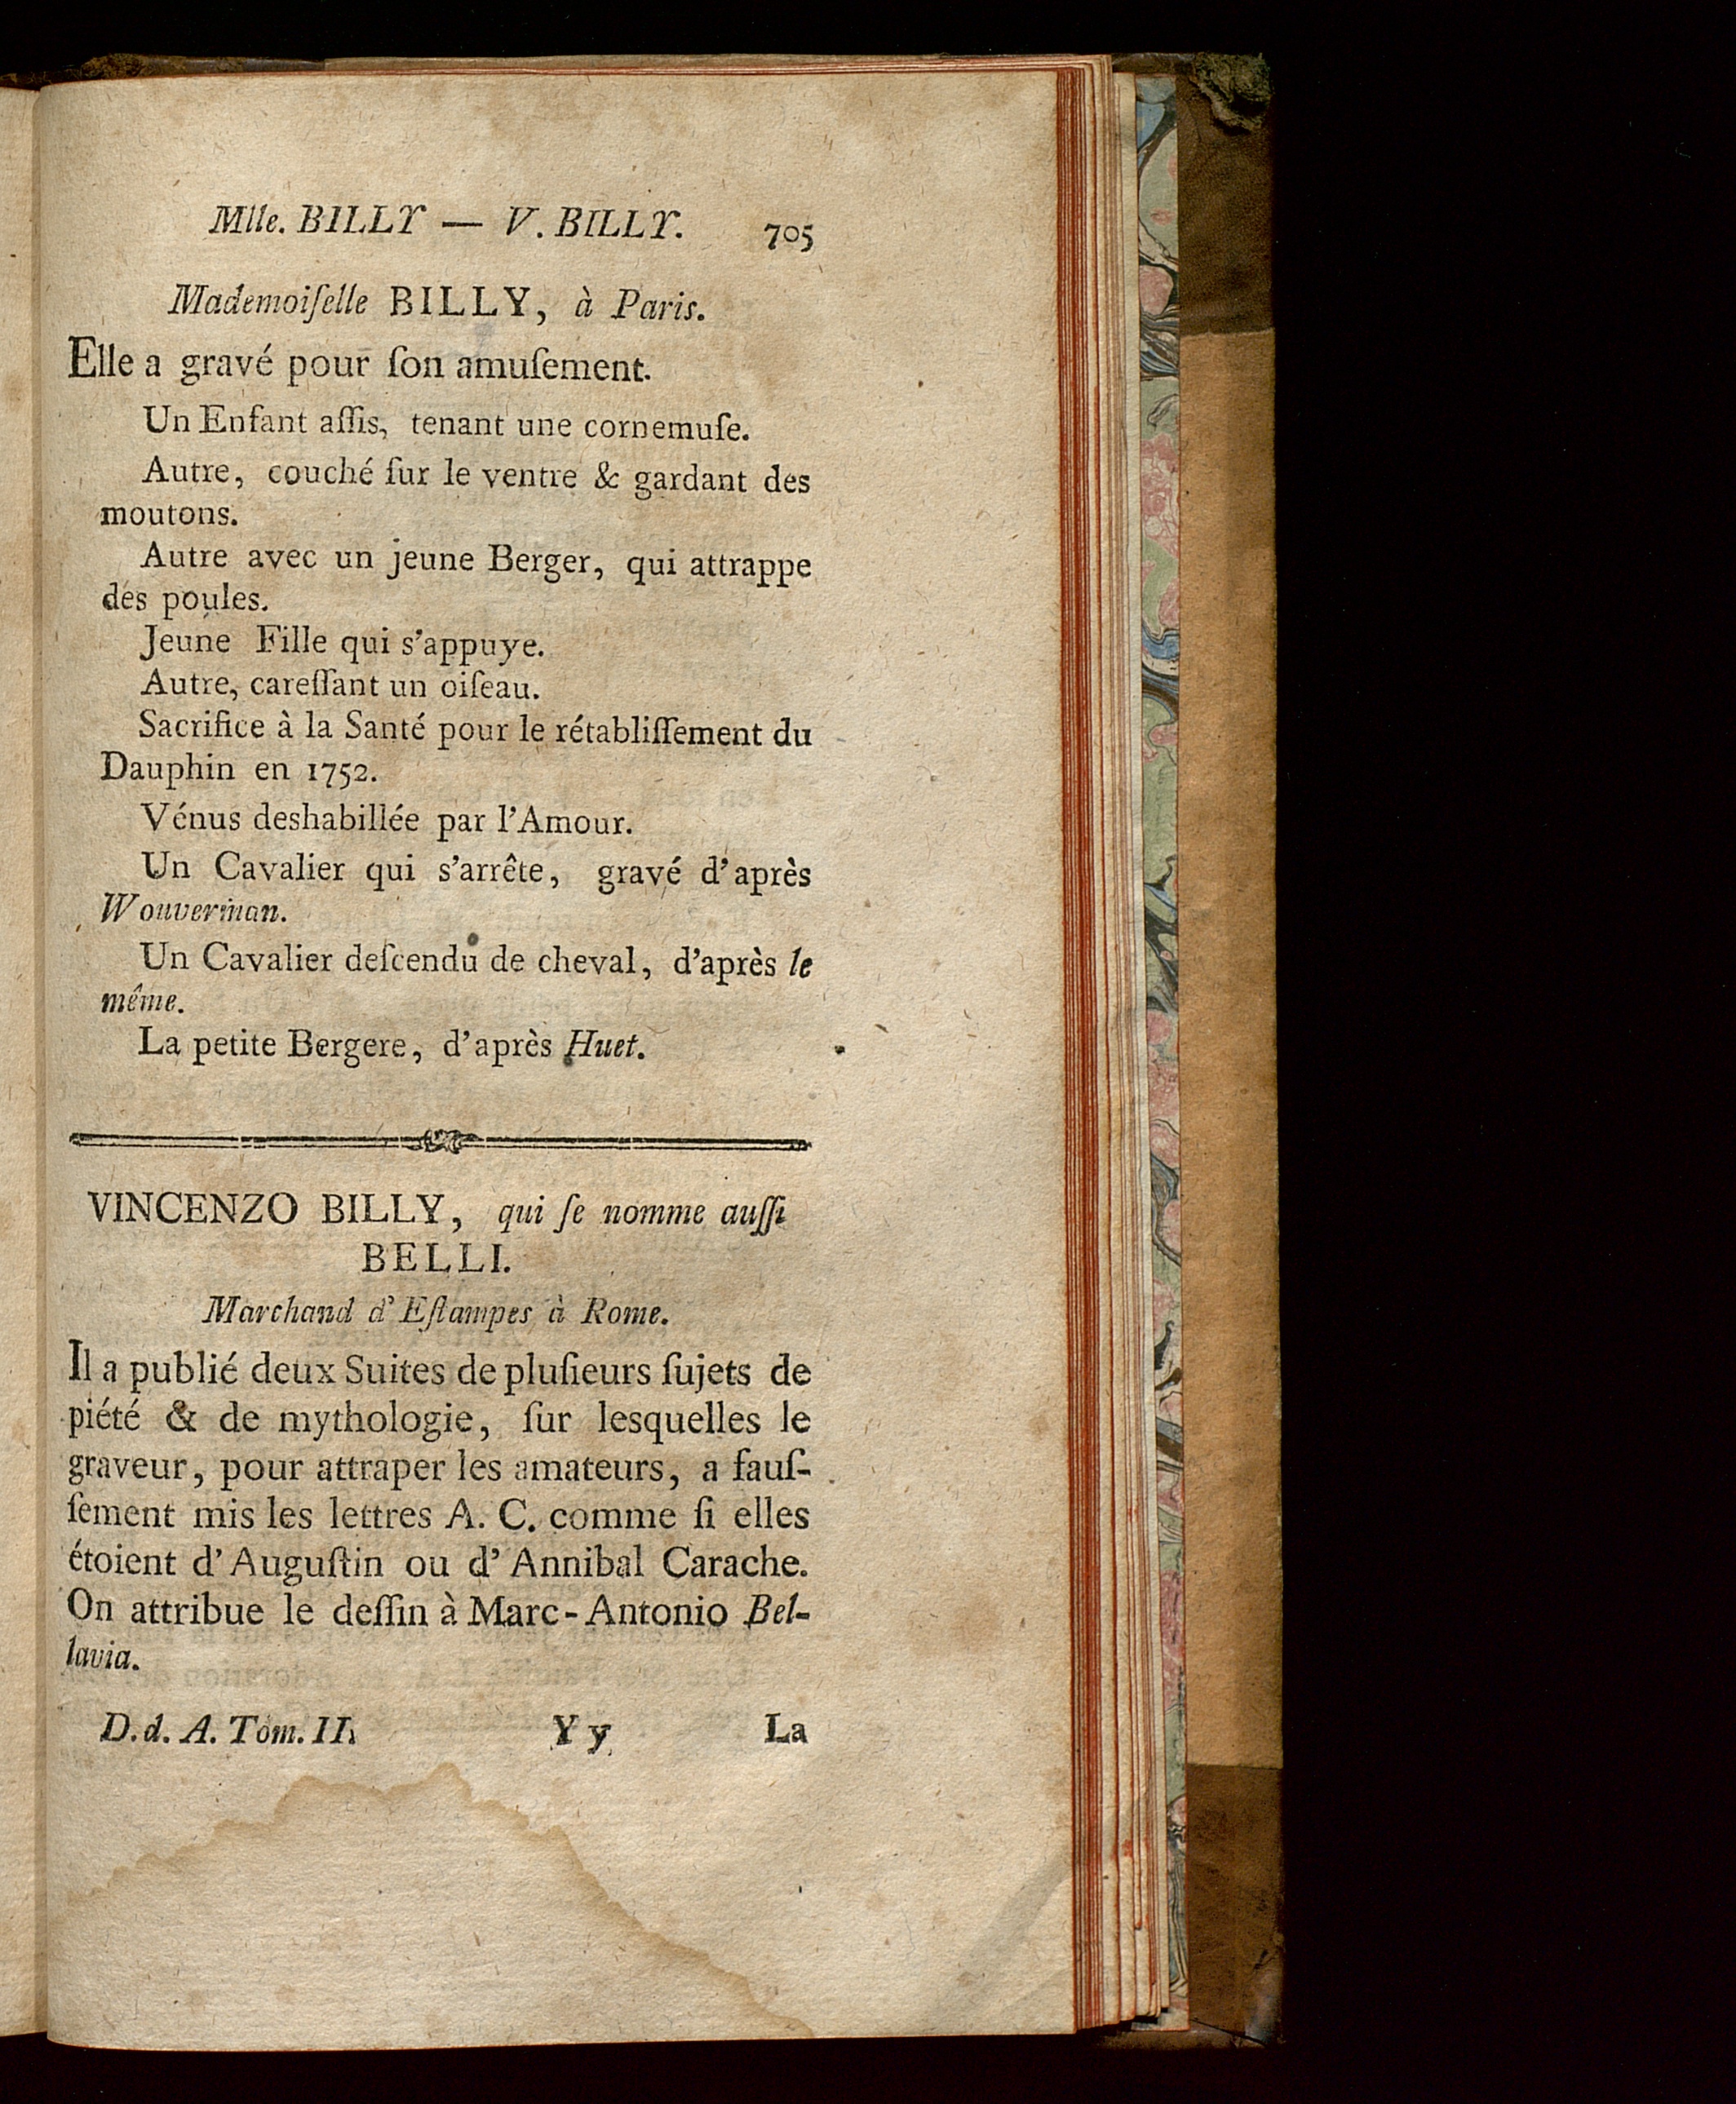 Mlle. BILLY — V. BILLY. 705
Mademoiſelle BILLY, à Paris.
Elle a gravé pour ſon amuſement.
Un Enfant aſſis, tenant une cornemuſe.
Autre, couché ſur le ventre & gardant des
moutons.
Autre avec un jeune Berger, qui attrappe
des poules.
Jeune Fille qui s'appuye.
Autre, careſſant un oiſeau.
Sacrifice à la Santé pour le rétabliſſement du
Dauphin en 1752.
Vénus deshabillée par l'Amour.
Un Cavalier qui s'arrête, gravé d'après
Wouverman.
Un Cavalier deſcendu de cheval, d'après le
même.
La petite Bergere, d'après Huet.
VINCENZO BILLY, qui ſe nomme auſſi
BELLI.
Marchand d'Eſtampes à Rome.
Il a publié deux Suites de pluſieurs ſujets de
piété & de mythologie, ſur lesquelles le
graveur, pour attraper les amateurs, a fauſ-
ſement mis les lettres A. C. comme ſi elles
étoient d'Auguſtin ou d'Annibal Carache.
On attribue le deſſin à Marc-Antonio Bel-
lavia.
D. d. A. Tom. II. Y y La